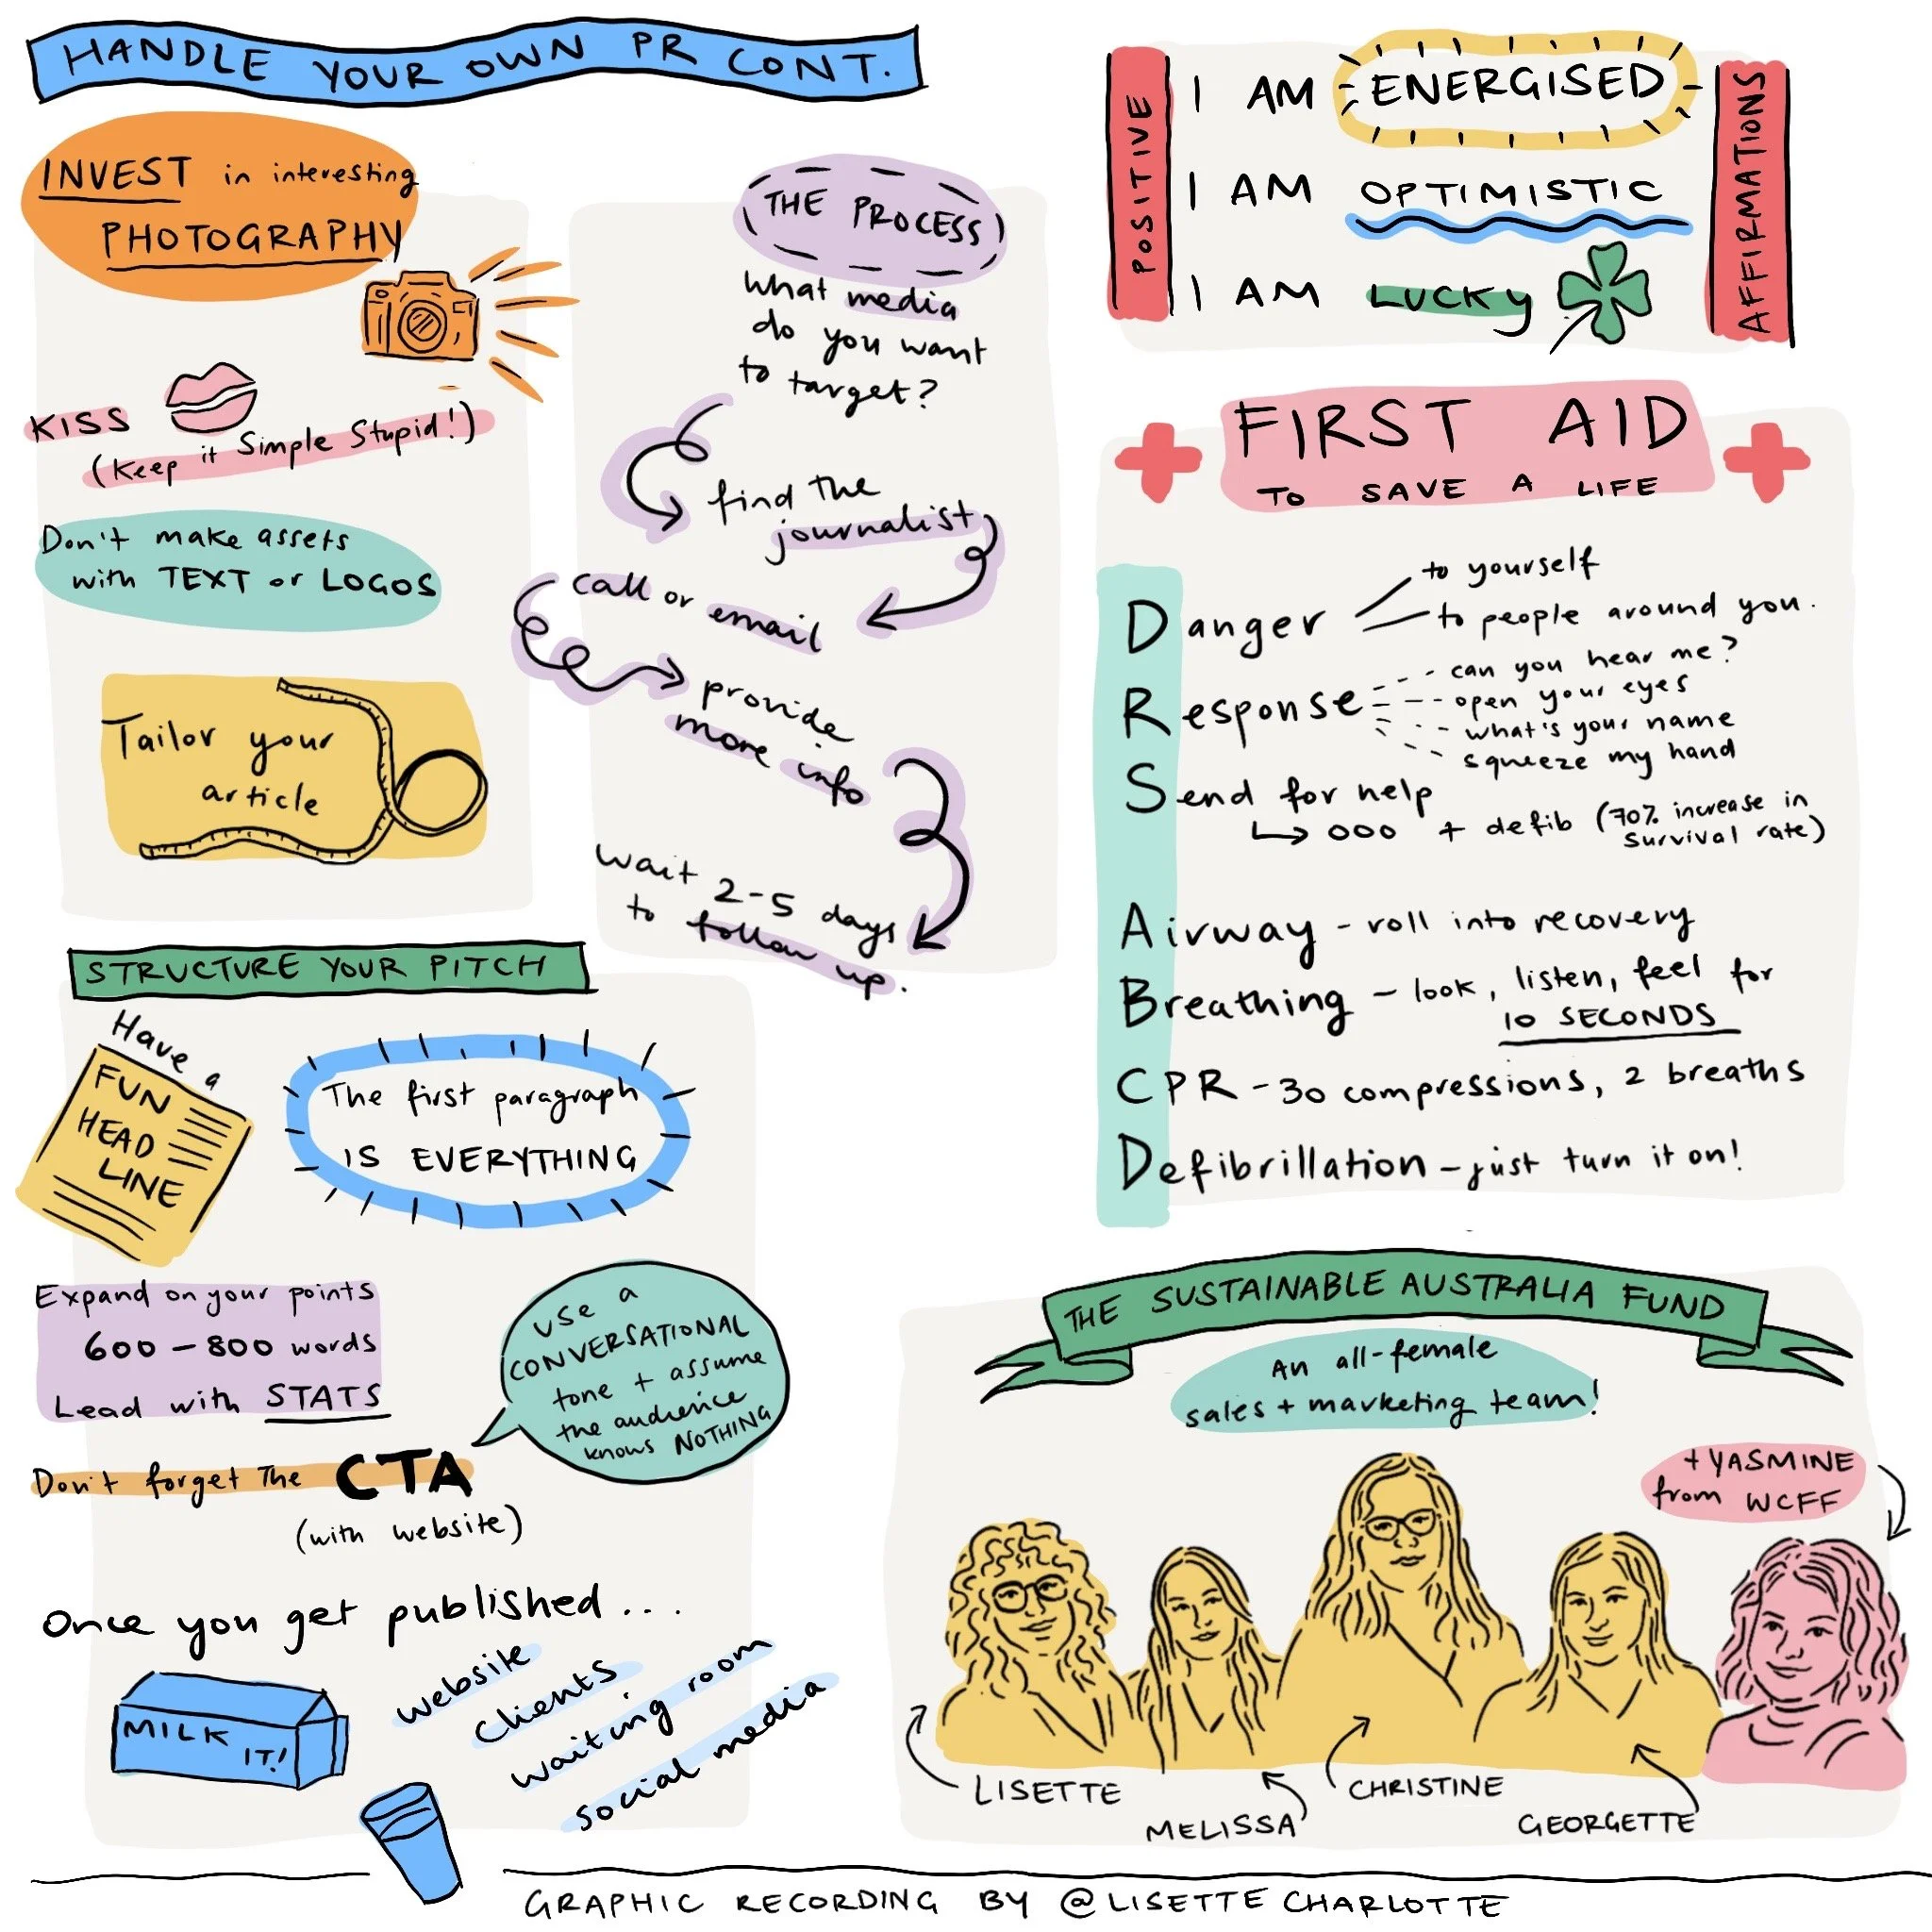 HANDLE YOUR OWN PR CONT.
INVEST in interesting
PHOTOGRAPHY
KISS
(Keep it Simple Stupid!)
Don't make assets
with TEXT or LOGOS
Tailor your
article
THE PROCESS
What media
do you want
to target?
find the
journalist
call or email
provide
more info
wait 2-5 days
to follow up.
STRUCTURE YOUR PITCH
Have a
FUN
HEAD
LINE
The first paragraph
IS EVERYTHING
Expand on your points
600 - 800 words
Lead with STATS
use a
CONVERSATIONAL
tone + assume
the audience
knows NOTHING
Don't forget the CTA
(with website)
Once you get published...
MILK
IT!
website
clients
waiting room
social media
POSITIVE
I AM ENERGISED
I AM OPTIMISTIC
I AM LUCKY
AFFIRMATIONS
FIRST AID
TO SAVE A LIFE
Danger
to yourself
to people around you.
Response
can you hear me?
open your eyes
what's your name
squeeze my hand
Send for help
000 + defib (70% increase in
survival rate)
Airway - roll into recovery
Breathing - look, listen, feel for
10 SECONDS
CPR - 30 compressions, 2 breaths
Defibrillation - just turn it on!
THE SUSTAINABLE AUSTRALIA FUND
An all-female
sales + marketing team!
+ YASMINE
from WCFF
LISETTE
MELISSA
CHRISTINE
GEORGETTE
GRAPHIC RECORDING BY @LISETTECHARLOTTE